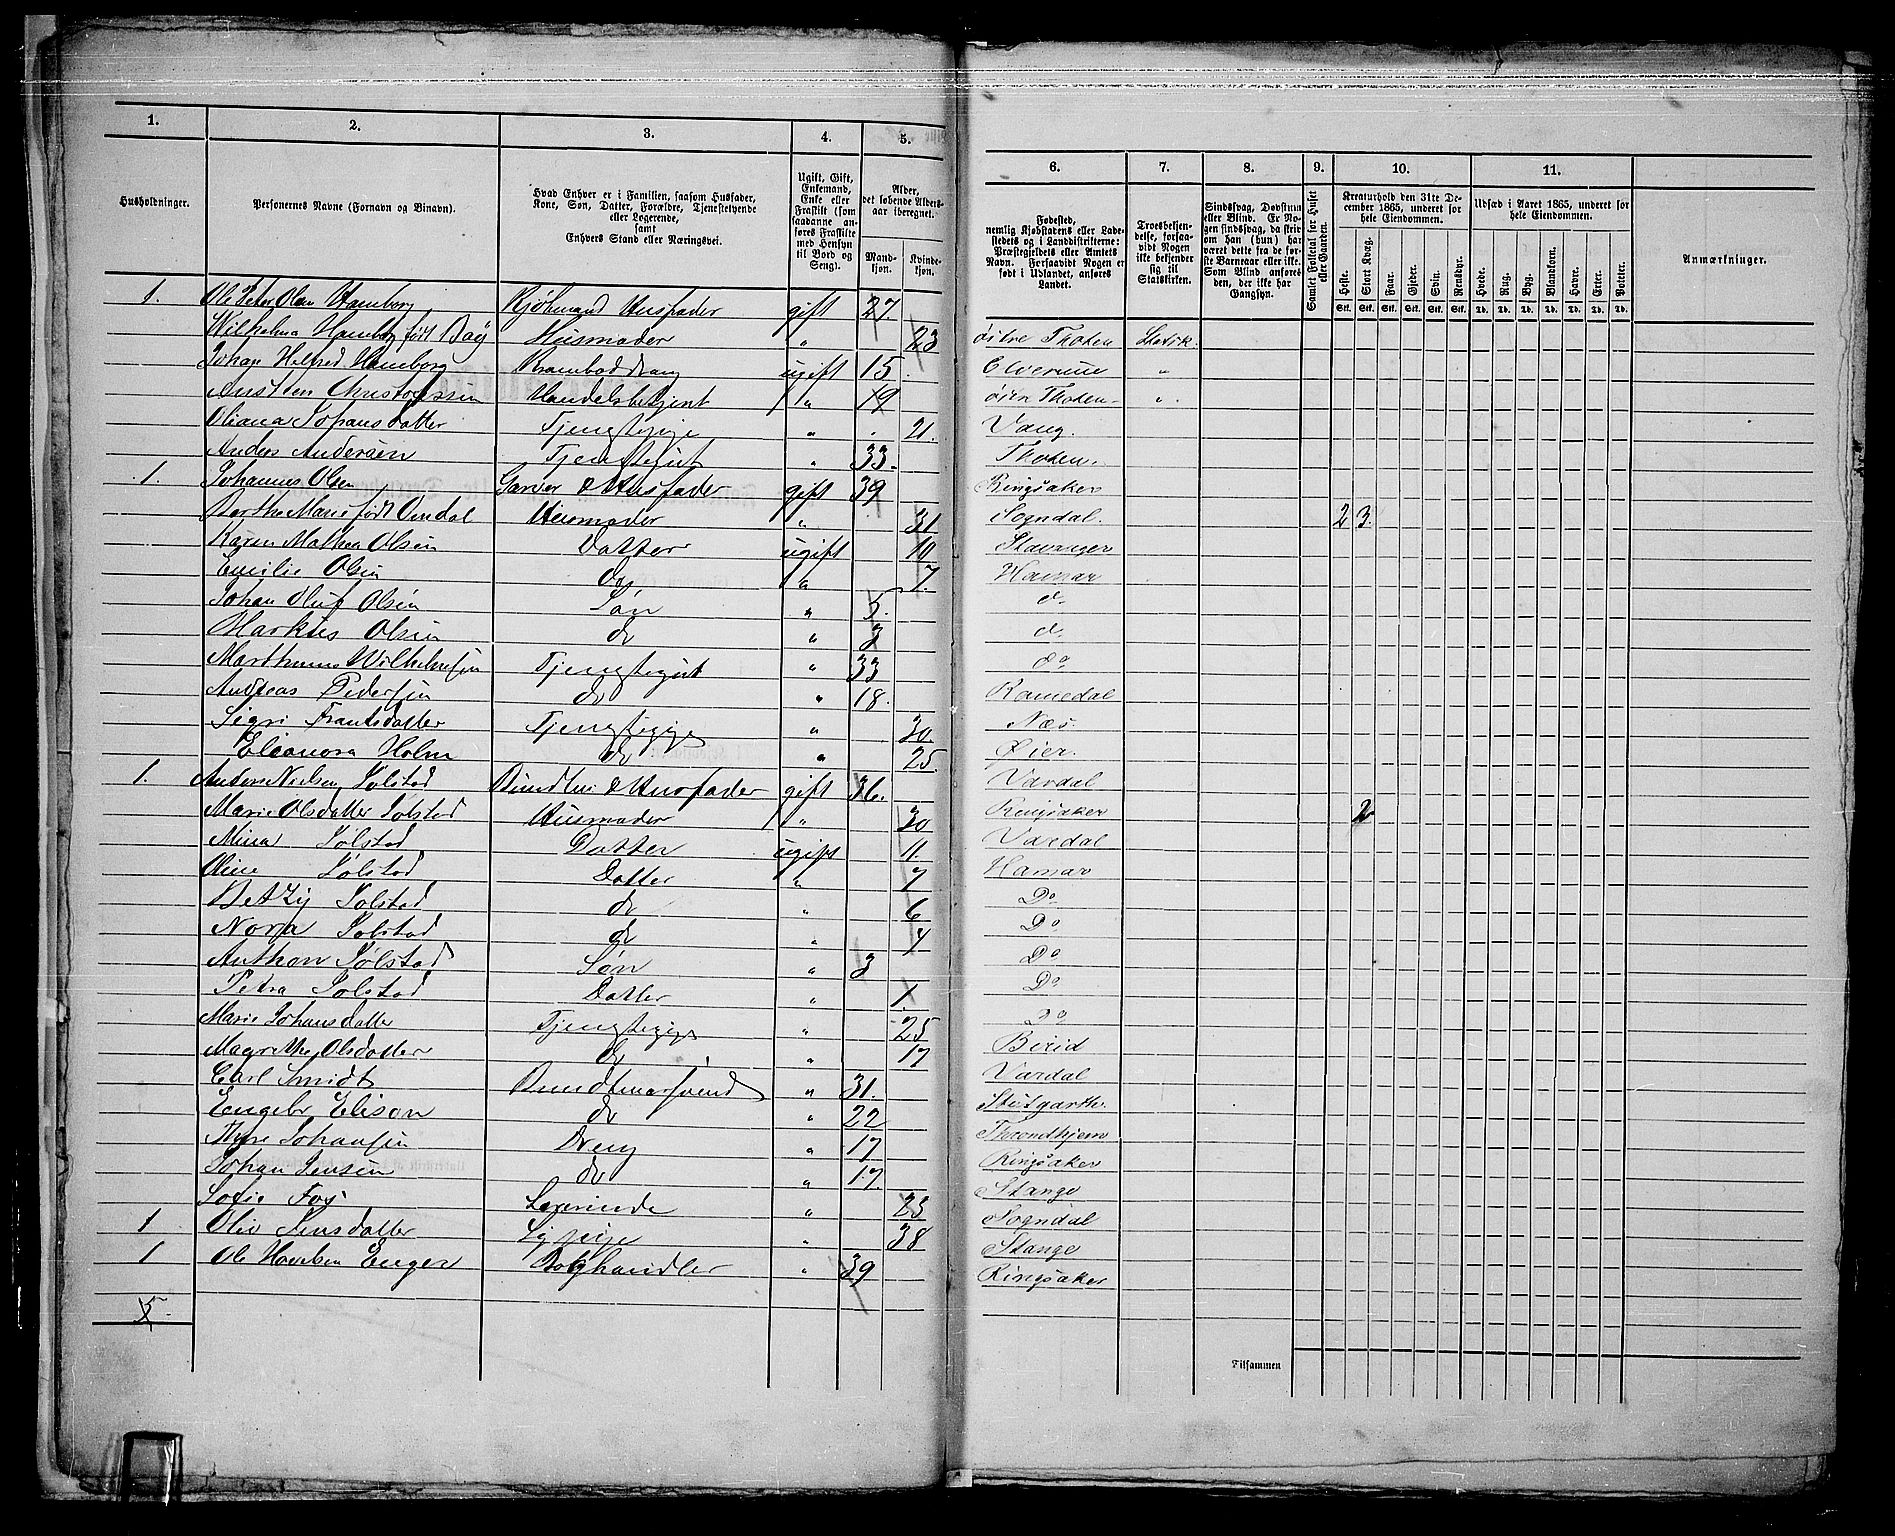 1. 2. 3. 4. 5.
Husholdninger.
Personernes Navne (Fornavn og Binavn).
Hvad Enhver er i Familien, saasom Husfader, Kone, Søn, Datter, Forældre, Tjenestetyende eller Logerende, samt Enhvers Stand eller Næringsvei.
Ugift, Gift, Enkemand, Enke eller Fraskilt (som saadanne anføres Fraskilte med Hensyn til Bord og Seng).
Alder, det løbende Aldersaar iberegnet.
Mandkjøn. Kvindekjøn.
1. Ole Peter Olsen Hamborg Kjøbmand Husfader gift 27
Wilhelma Hamborg født Bay Husmoder " 23
Johan Helfred Hamborg Kramboddreng ugift 15
Austen Christophersen Handelsbetjent " 19
Oliana Johansdatter Tjenstepige " 21.
Anders Andersen Tjenstegut " 33.
1. Johannes Olsen Garver & Husfader gift 39
Berthe Marie født Omdal Husmoder " 31.
Karen Mathea Olsen Datter ugift 10
Emilie Olsen do " 7.
Johan Oluf Olsen Søn " 5.
Markus Olsen do " 3
Marthinus Wilhelmsen Tjenstegut " 33
Andreas Pedersen do " 18.
Sigri Frantsdatter Tjenstepige " 30
Eleonora Holm do " 25.
1. Anders Nielsen Solstad Bundtm. & Husfader gift 36.
Marie Olsdatter Solstad Husmoder " 30
Mina Solstad Datter ugift 11.
Oline Solstad Datter " 7
Betzy Solstad do " 6
Nora Solstad do " 4
Anthon Solstad Søn " 3
Petra Solstad Datter " 1.
Marie Johansdatter Tjenstepige " 25
Magrethe Olsdatter do " 17
Carl Smidt Bundtmarsvend " 31.
Engebr Elison do " 22
Johansen Dreng " 17
Johan Jensen do " 17.
Sofie Foss Lærerinde " 23
1 Olio Jensdatter pige " 38
1 Ole Enger Boghandler " 39
5.
6. 7. 8. 9. 10. 11.
Fødested, nemlig Kjøbstadens eller Ladestedets og i Landdistrikterne: Præstegjeldets eller Amtets Navn. Forsaavidt Nogen er født i Udlandet, anføres Landet.
Troesbekjendelse, forsaavidt Nogen ikke bekjender sig til Statskirken.
Sindssvag, Døvstum eller Blind. Er Nogen sindssvag, da skrives om han (hun) har været dette fra de første Barneaar eller ikke. Som Blind anføres den, der ikke har Gangsyn.
Samlet Folketal for Huset eller Gaarden.
Kreaturhold den 31te December 1865, underet for hele Eiendommen.
Heste. Stort Kvæg. Faar. Gjeder. Svin. Rensdyr.
Stk. Stk. Stk. Stk. Stk. Stk.
Udsæd i Aaret 1865, underet for hele Eiendommen.
Hvede. Rug. Byg. Blandkorn. Havre. Erter. Poteter.
Td. Td. Td. Td. Td. Td. Td.
Anmærkninger.
østre Thoten
Elverum "
østre Thoten "
Vang.
Thoten.
Ringsaker
Sogndal. 2 3.
Stavanger
Hamar
d.
d.
do
Romedal
Næs.
Øier.
Vardal
Ringsaker 2
Vardal
Hamar
Do
Do
Do
Do
Do
Birid
Vardal
Stutgarth.
Throndhjem
Ringsaker
Stange
Sogndal
Stange
Ringsaker
Tilsammen